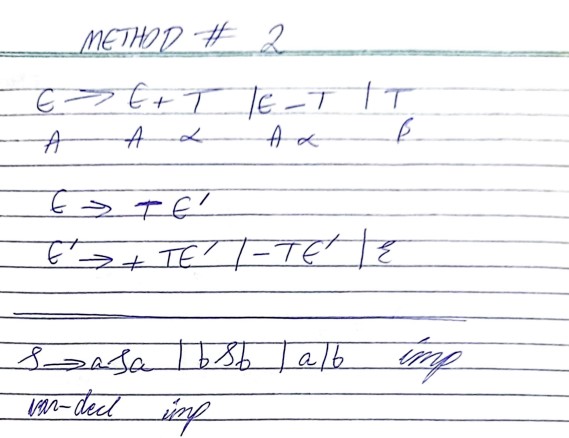 METHOD # 2
E → E + T | E - T | T
A A α A α β
E → T E'
E' → + TE' | - TE' | ε
S → aSa | bSb | a | b imp
var-decl imp